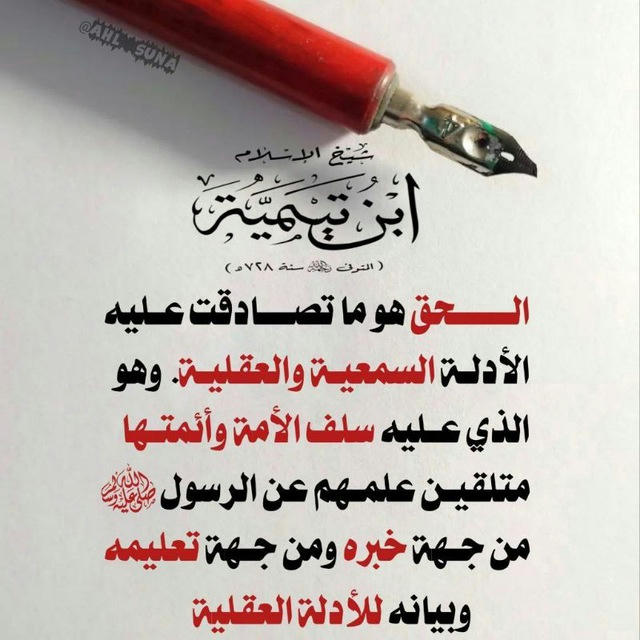 @AHL_SUNA
شيخ الإسلام
ابن تيمية
(المتوفى رحمه الله سنة ٧٢٨هـ)
الحق هو ما تصادقت عليه
الأدلة السمعية والعقلية. وهو
الذي عليه سلف الأمة وأئمتها
متلقين علمهم عن الرسول ﷺ
من جهة خبره ومن جهة تعليمه
وبيانه للأدلة العقلية